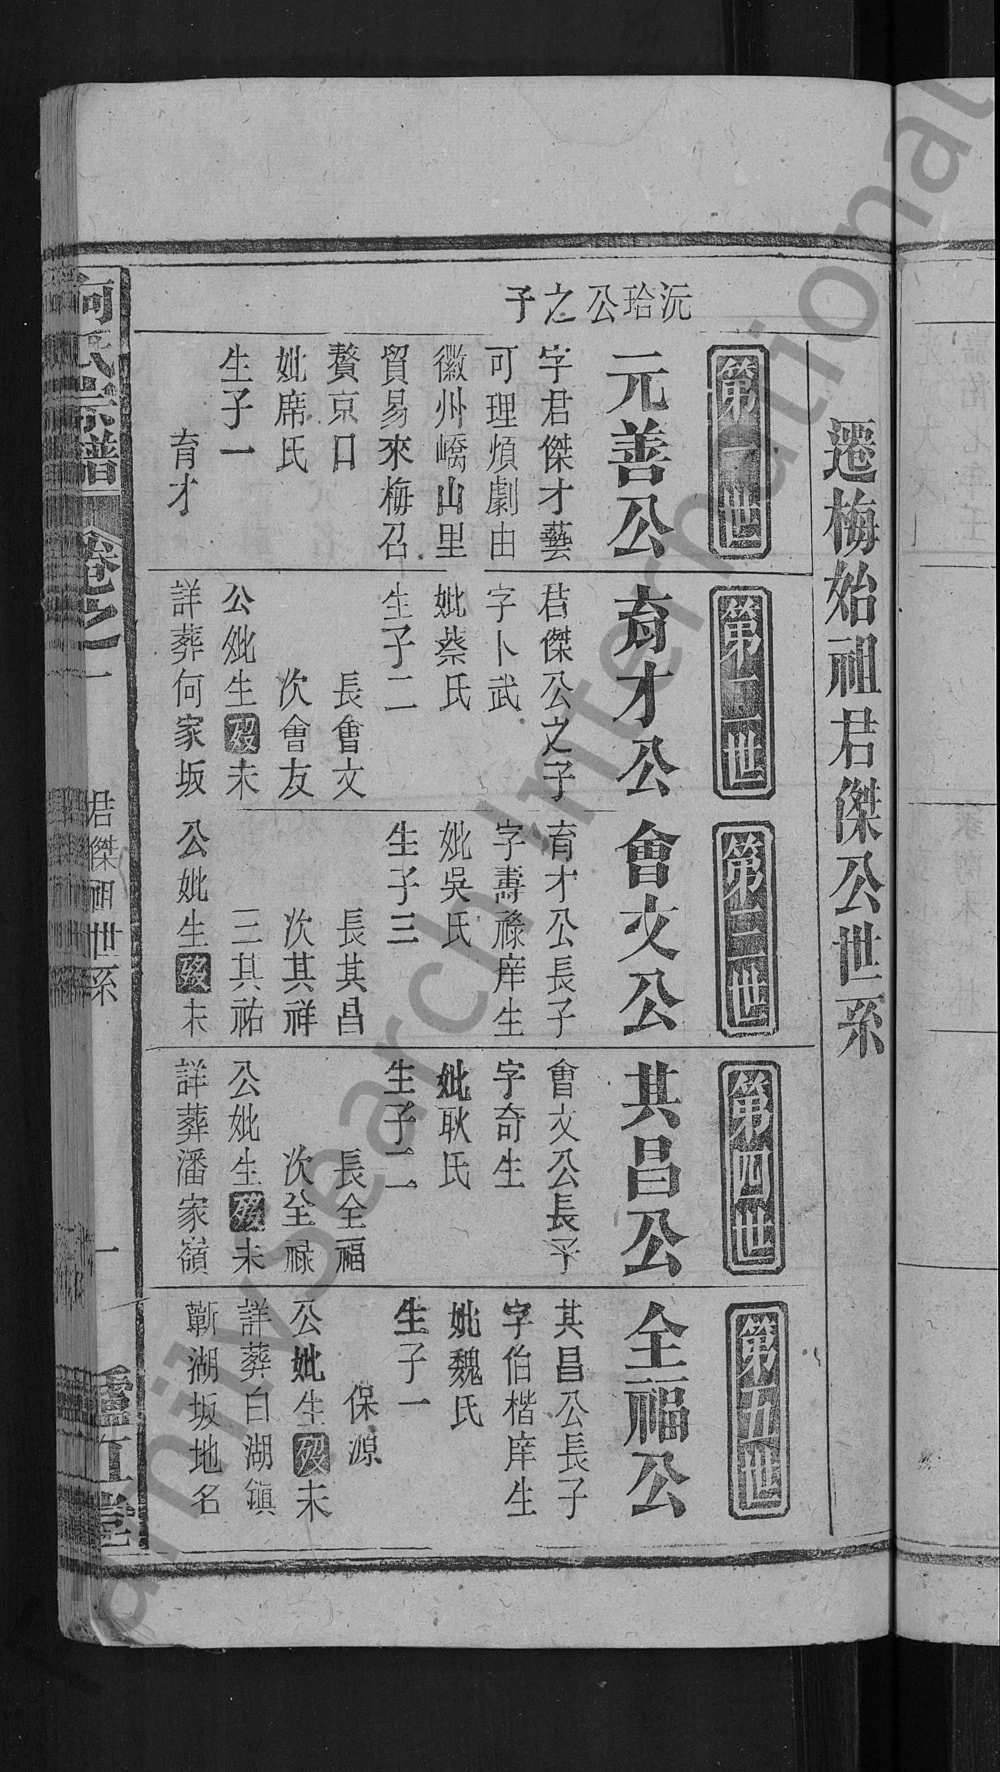 遷梅始祖君傑公世系
沅珨公之子
第一世
元善公
字君傑才藝
可理煩劇由
徽州嶠山里
貿易來梅召
贅京口
妣席氏
生子一
育才
第二世
育才公
君傑公之子
字卜武
妣蔡氏
生子二
長會文
次會友
公妣生歿未
詳葬何家坂
第三世
會文公
育才公長子
字壽祿庠生
妣吳氏
生子三
長其昌
次其祥
三其祐
公妣生歿未
第四世
其昌公
會文公長子
字奇生
妣耿氏
生子二
長全福
次全祿
公妣生歿未
詳葬潘家嶺
第五世
全福公
其昌公長子
字伯楷庠生
妣魏氏
生子一
保源
公妣生歿未
詳葬白湖鎮
蘄湖坂地名
何氏宗譜
卷之一
君傑祖世系
一
廬江堂
FamilySearch International